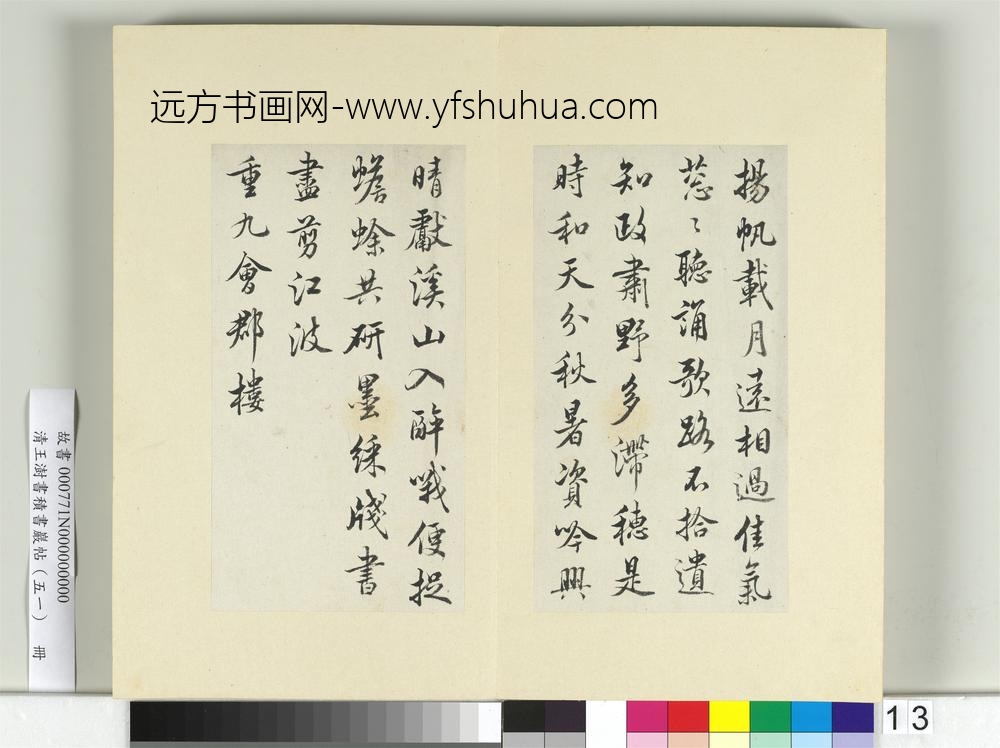 远方书画网-www.yfshuhua.com
揚帆載月遠相過佳氣
葱〻聽誦歌路不拾遺
知政肅野多滯穗是
時和天分秋暑資吟興
晴獻溪山入醉哦便捉
蟾蜍共研墨綵牋書
盡剪江波
重九會郡樓
故書 000771N000000000
清王澍書積書巖帖(五一) 冊
13